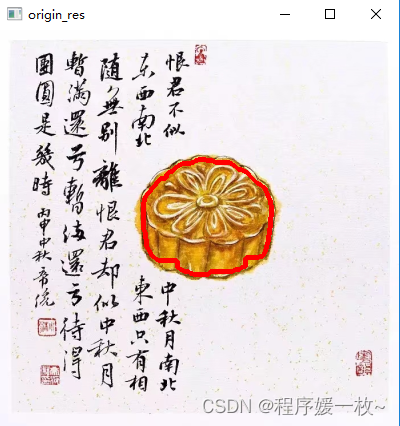 origin_res
恨君不似
中秋月南北
东西南北
東西只有相
随無别離恨君却似中秋月
暫滿還亏暫满還亏待得
團圓是幾時
丙申中秋
CSDN @程序媛一枚~